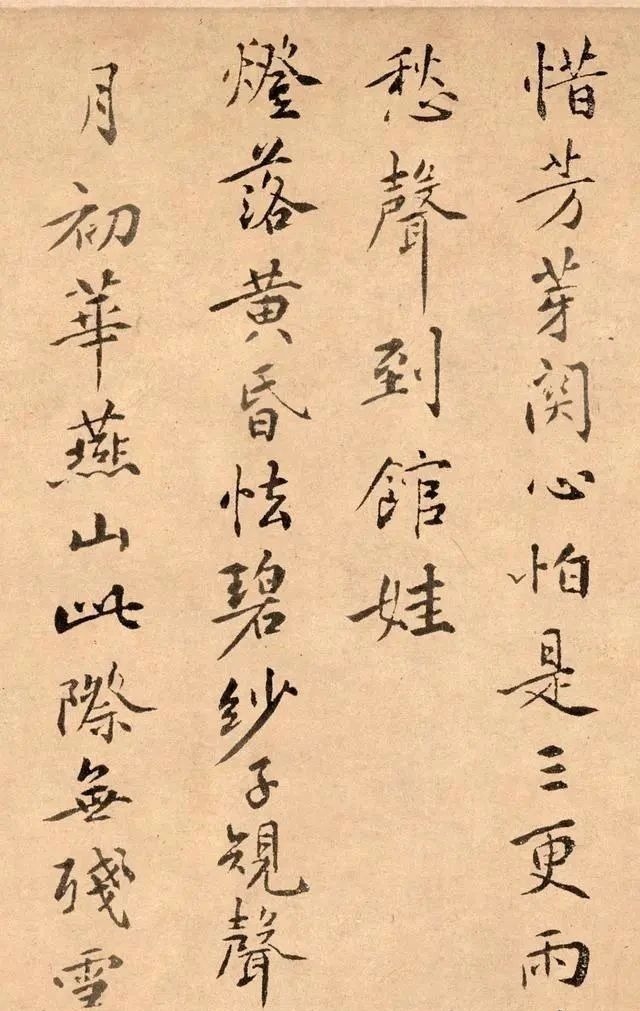 惜芳芽関心怕是三更雨
愁聲到館娃
燈落黄昏怯碧紗子規聲
月初華燕山此際無殘雪